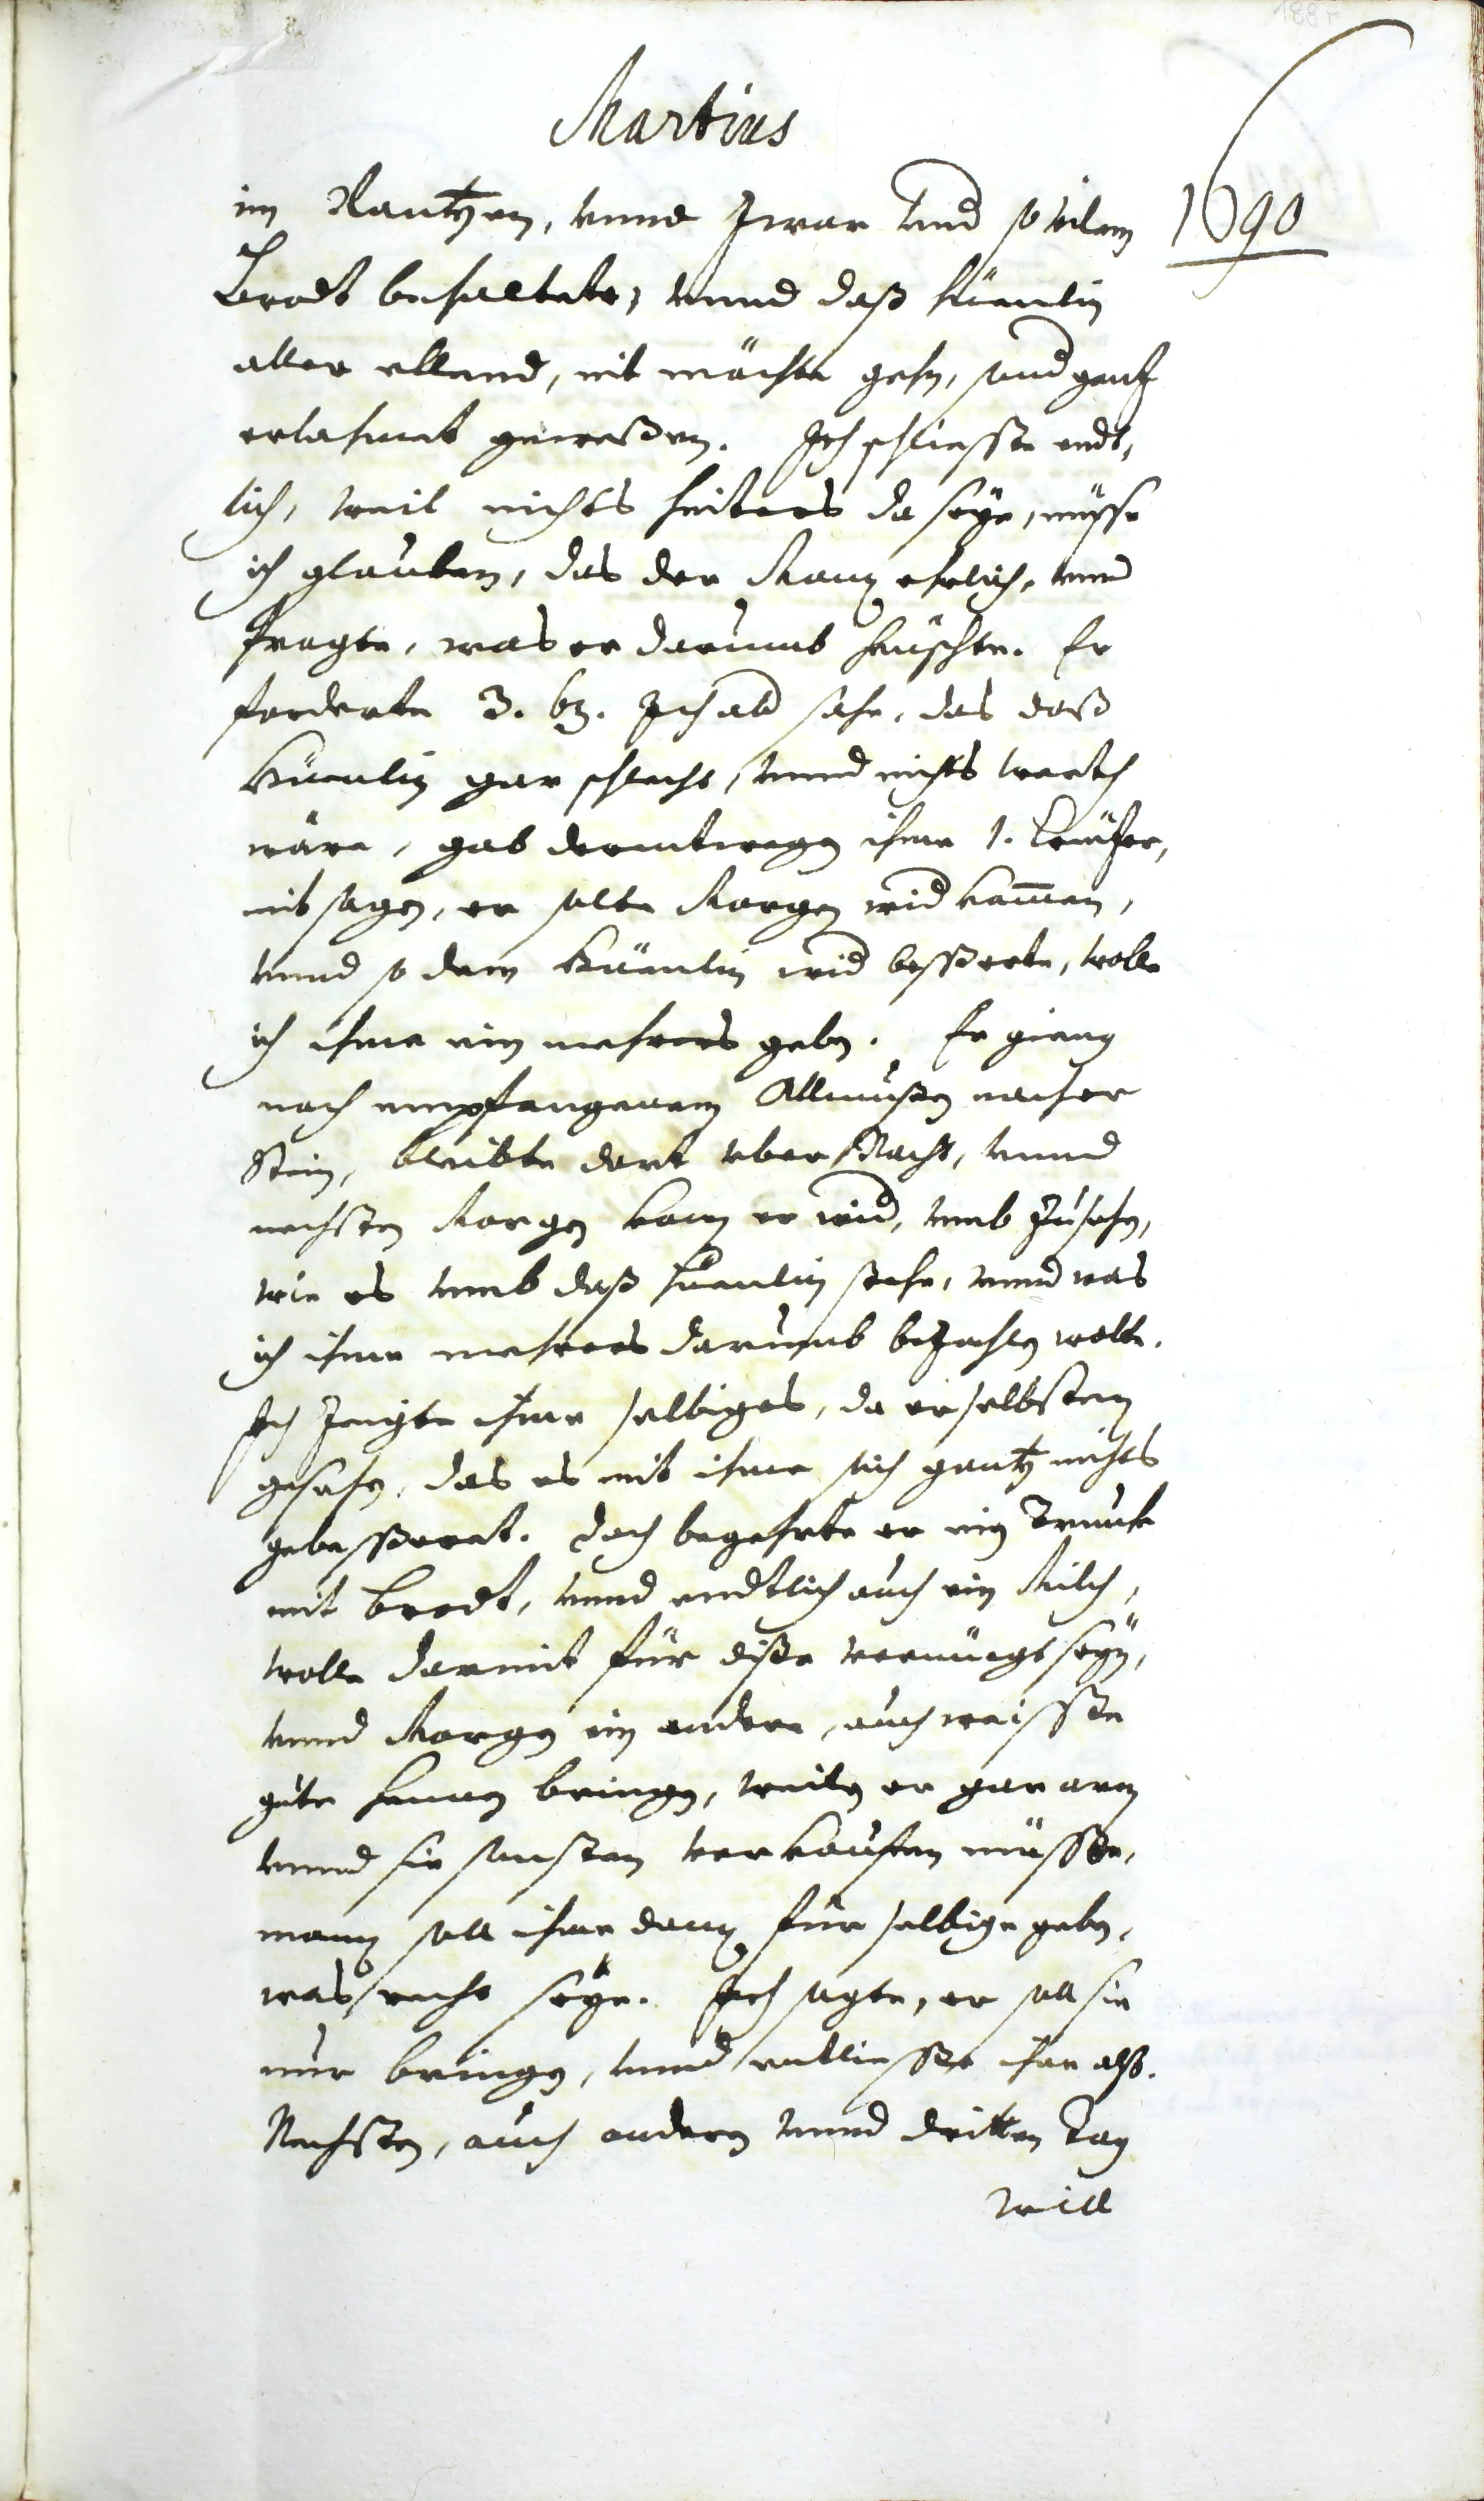 188r
Martius
1690
im Rantzen, unnd zwar und so vilem
Brodt behaltete, unnd daß Hüenlin
aller ellend, nit möchte gehn, und gantz
erlahmet gewessen. Ich schliesste endt,
lich, weil nichts heiters da seye, müsse
ich glauben, das der Mann ehrlich, unnd
fragte, was er darumb heüschte. Er
forderte 3. bz. Ich ab sahe, das daß
Hüenlin gar schlecht, unnd nichts werth
wäre, gab derentwegen ihme 1. Creützer,
mit sagen, er solte Morgen wid kommen,
unnd so dem Hüenlin wid besserte, wolle
ich ihme ein mehrers geben. Er gieng
nach empfangenem Allmußen nacher
Stein, bleibte dort uber Nacht, unnd
nechsten Morgen kam er wid, umb zusehen,
wie es umb daß Hüenlin stehe, unnd was
ich ihme mehrers darumb bezahlen wolte.
Ich zeigte ihme selbiges, da er selbsten
gesehen, das es mit ihme sich gantz nichts
gebesseret. Doch begehrte er ein Trunk
mit Brodt, unnd endtlich auch ein Milch,
wolle darmit für disse vernüegt seyn,
unnd Morgen ein andere, auch weisste
gute Hennen bringen, weilen er gar arm
unnd sie sonsten verkauffen müsste,
mann soll ihme dann für selbige geben,
was recht seye. Ich sagte, er soll sie
nur bringen, unnd entliesste ihne also.
Nechsten, auch andern unnd dritten Tag
will